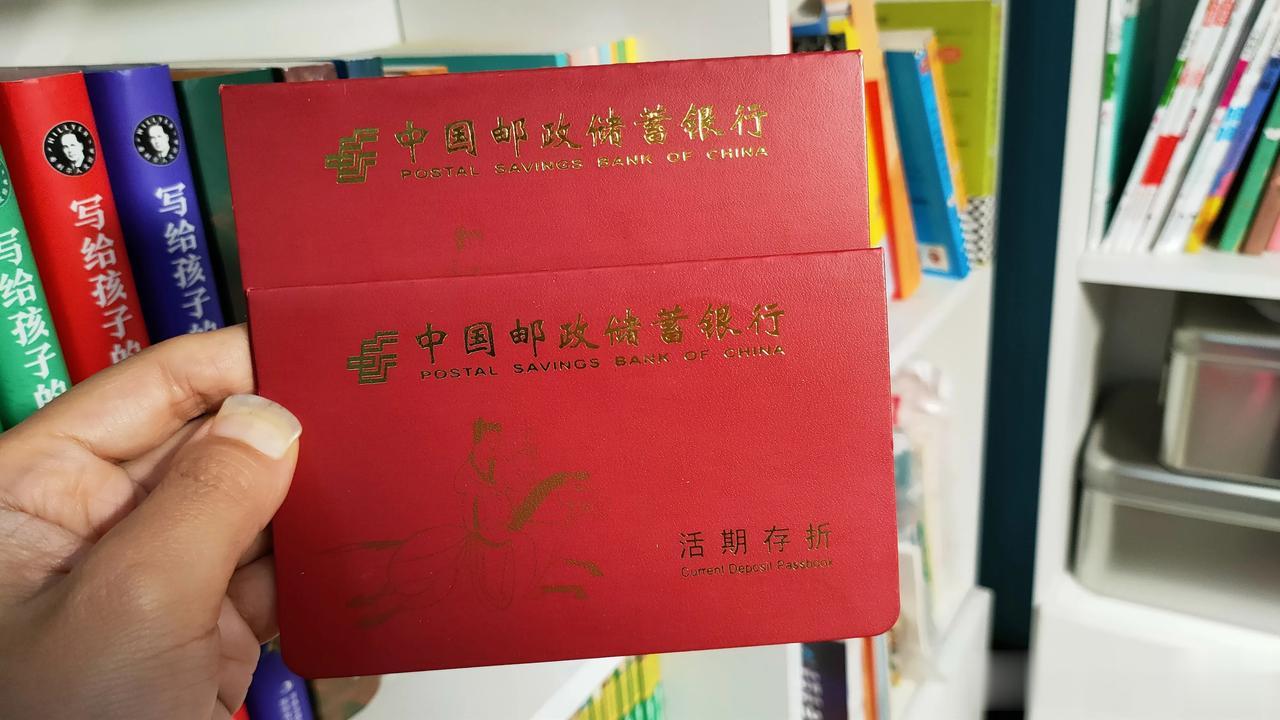 中国邮政储蓄银行
POSTAL SAVINGS BANK OF CHINA
中国邮政储蓄银行
POSTAL SAVINGS BANK OF CHINA
活期存折
Current Deposit Passbook
写给孩子的
HILLYER
写给孩子的
HILLYER
写给孩子的